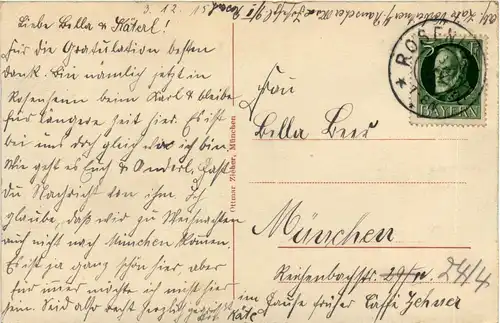 3. 12. 15
Liebe Bella & Käterl!
Für die Gratulation besten
Dank. Bin nämlich jetzt in
Rosenheim beim Karl & bleibe
für längere Zeit hier. Es ist
bei uns doch gleich wo ich bin
Wie geht es Euch & Anderl. Hast
Du Nachricht von ihm. Ich
glaube, daß wir zu Weihnachten
auch nicht nach München können.
Es ist ja ganz schön hier, aber
für immer möchte ich nicht hier
sein. Seid also recht herzlich gegrüßt
Käte
Ottmar Zieher, München
ROSEN
BAYERN
Frau
Bella Beer
München
Reisenbachstr. 29/IV 24/4
im Hause früher Café Zehner